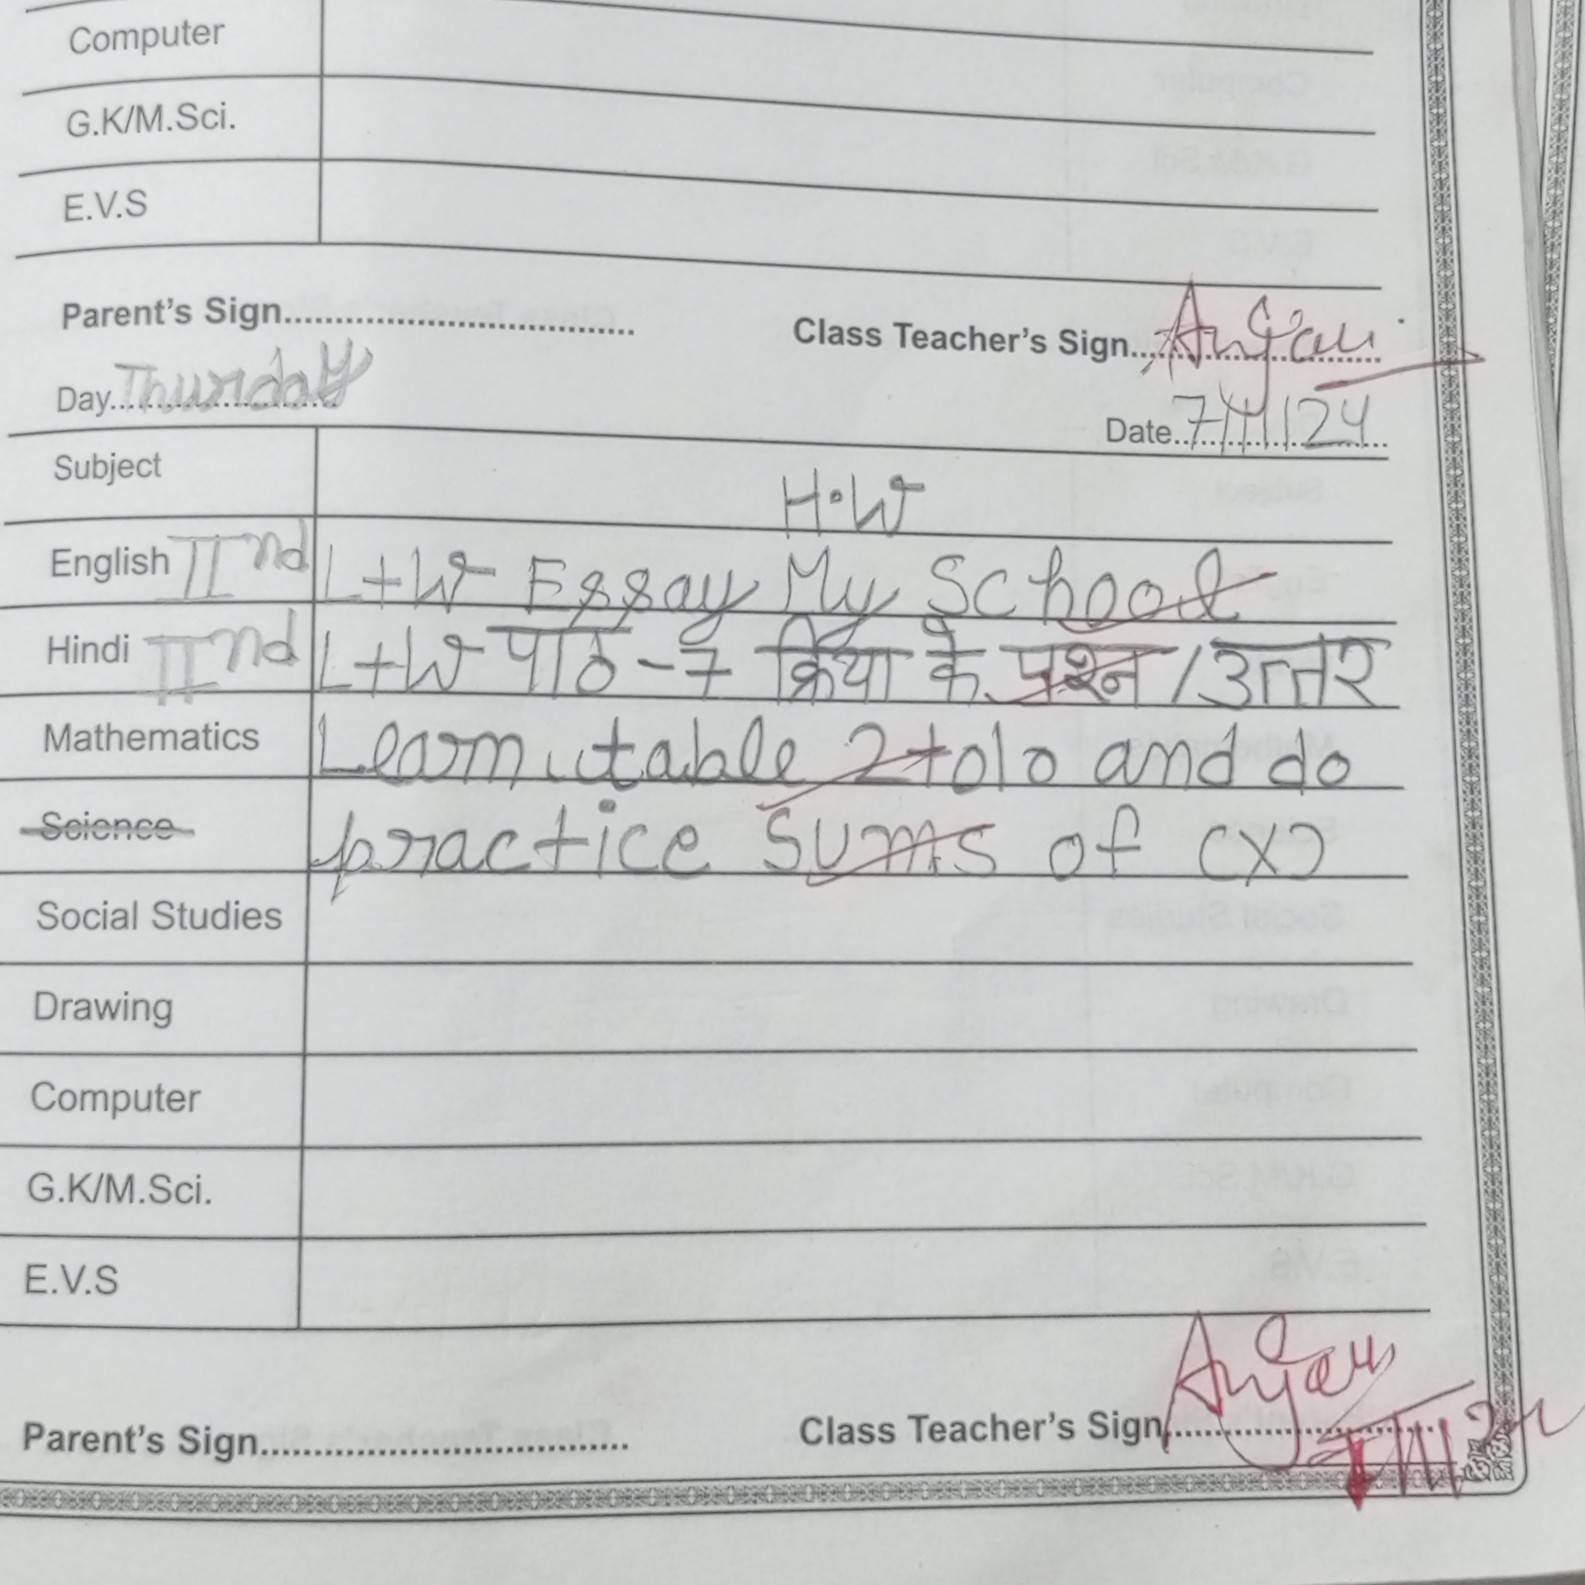 Computer
G.K/M.Sci.
E.V.S
Parent's Sign.................................. Class Teacher's Sign...Anjali
Day..Thursday
Date..7/11/24
Subject H.W
English IInd L+W Essay My School
Hindi IInd L+W पाठ-7 क्रिया के प्रश्न/उत्तर
Mathematics Learn table 2 to 10 and do
Science practice Sums of (x)
Social Studies
Drawing
Computer
G.K/M.Sci.
E.V.S
Parent's Sign.................................. Class Teacher's Sign